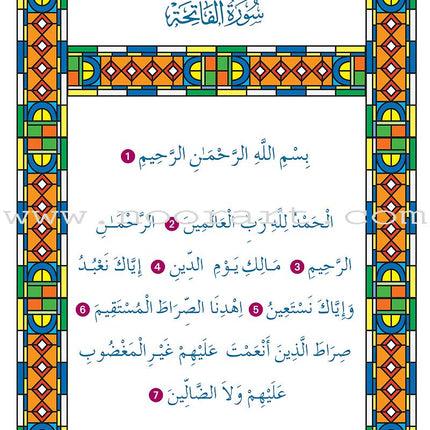 سُورَةُ الْفَاتِحَةِ
بِسْمِ اللَّهِ الرَّحْمَـٰنِ الرَّحِيمِ 1
الْحَمْدُ لِلَّهِ رَبِّ الْعَالَمِينَ 2 الرَّحْمَـٰنِ
الرَّحِيمِ 3 مَالِكِ يَوْمِ الدِّينِ 4 إِيَّاكَ نَعْبُدُ
وَإِيَّاكَ نَسْتَعِينُ 5 اِهْدِنَا الصِّرَاطَ الْمُسْتَقِيمَ 6
صِرَاطَ الَّذِينَ أَنْعَمْتَ عَلَيْهِمْ غَيْرِ الْمَغْضُوبِ
عَلَيْهِمْ وَلاَ الضَّالِّينَ 7
www.noorart.com